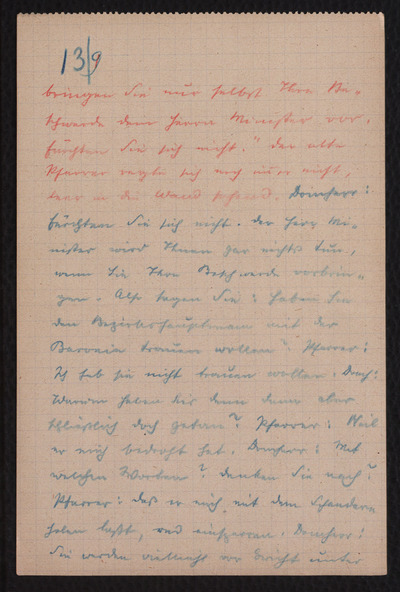 13/9
bringen Sie nur selbst Ihre Be-
schwerde dem Herrn Minister vor.
Fürchten Sie sich nicht." Der alte
Pfarrer regte sich noch immer nicht,
leer in die Wand sehend. Domherr:
Fürchten Sie sich nicht. Der Herr Mi-
nister wird Ihnen gar nichts tun,
wenn Sie Ihre Beschwerde vorbrin-
gen. Also sagen Sie: haben Sie
den Bezirkshauptmann mit der
Baronin trauen wollen? Pfarrer:
Ich hab sie nicht trauen wollen. Domh:
Warum haben Sie denn dann aber
schließlich doch getan? Pfarrer: Weil
er mich bedroht hat. Domherr: Mit
welchen Worten? Denken Sie nach!
Pfarrer: daß er mich mit dem Schandarm
holen laßt, und einsperren. Domherr:
Sie werden vielleicht vor Gericht unter